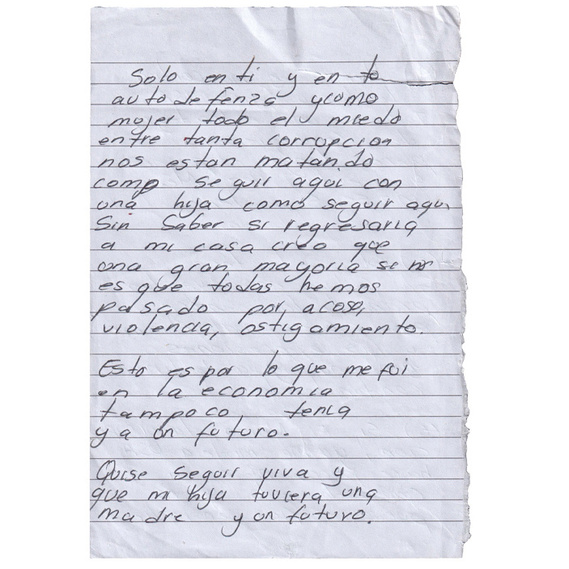 Solo en ti y en tu
autodefenza y como
mujer todo el miedo
entre tanta corrupcion
nos estan matando
como seguir aqui con
una hija como seguir aqui
Sin Saber si regresaria
a mi casa creo que
una gran mayoria si no
es que todas hemos
pasado por, acoso,
violencia, ostigamiento.
Esto es por lo que me fui
en la economia
tampoco tenia
ya un futuro.
Quise Seguir viva y
que mi hija tuviera una
madre y un futuro.